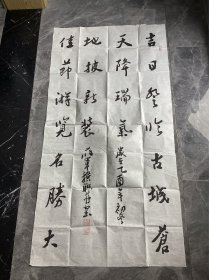 吉日登临古城苍
天降瑞气
岁在乙酉年初冬
地披新装
佳节游览名胜大